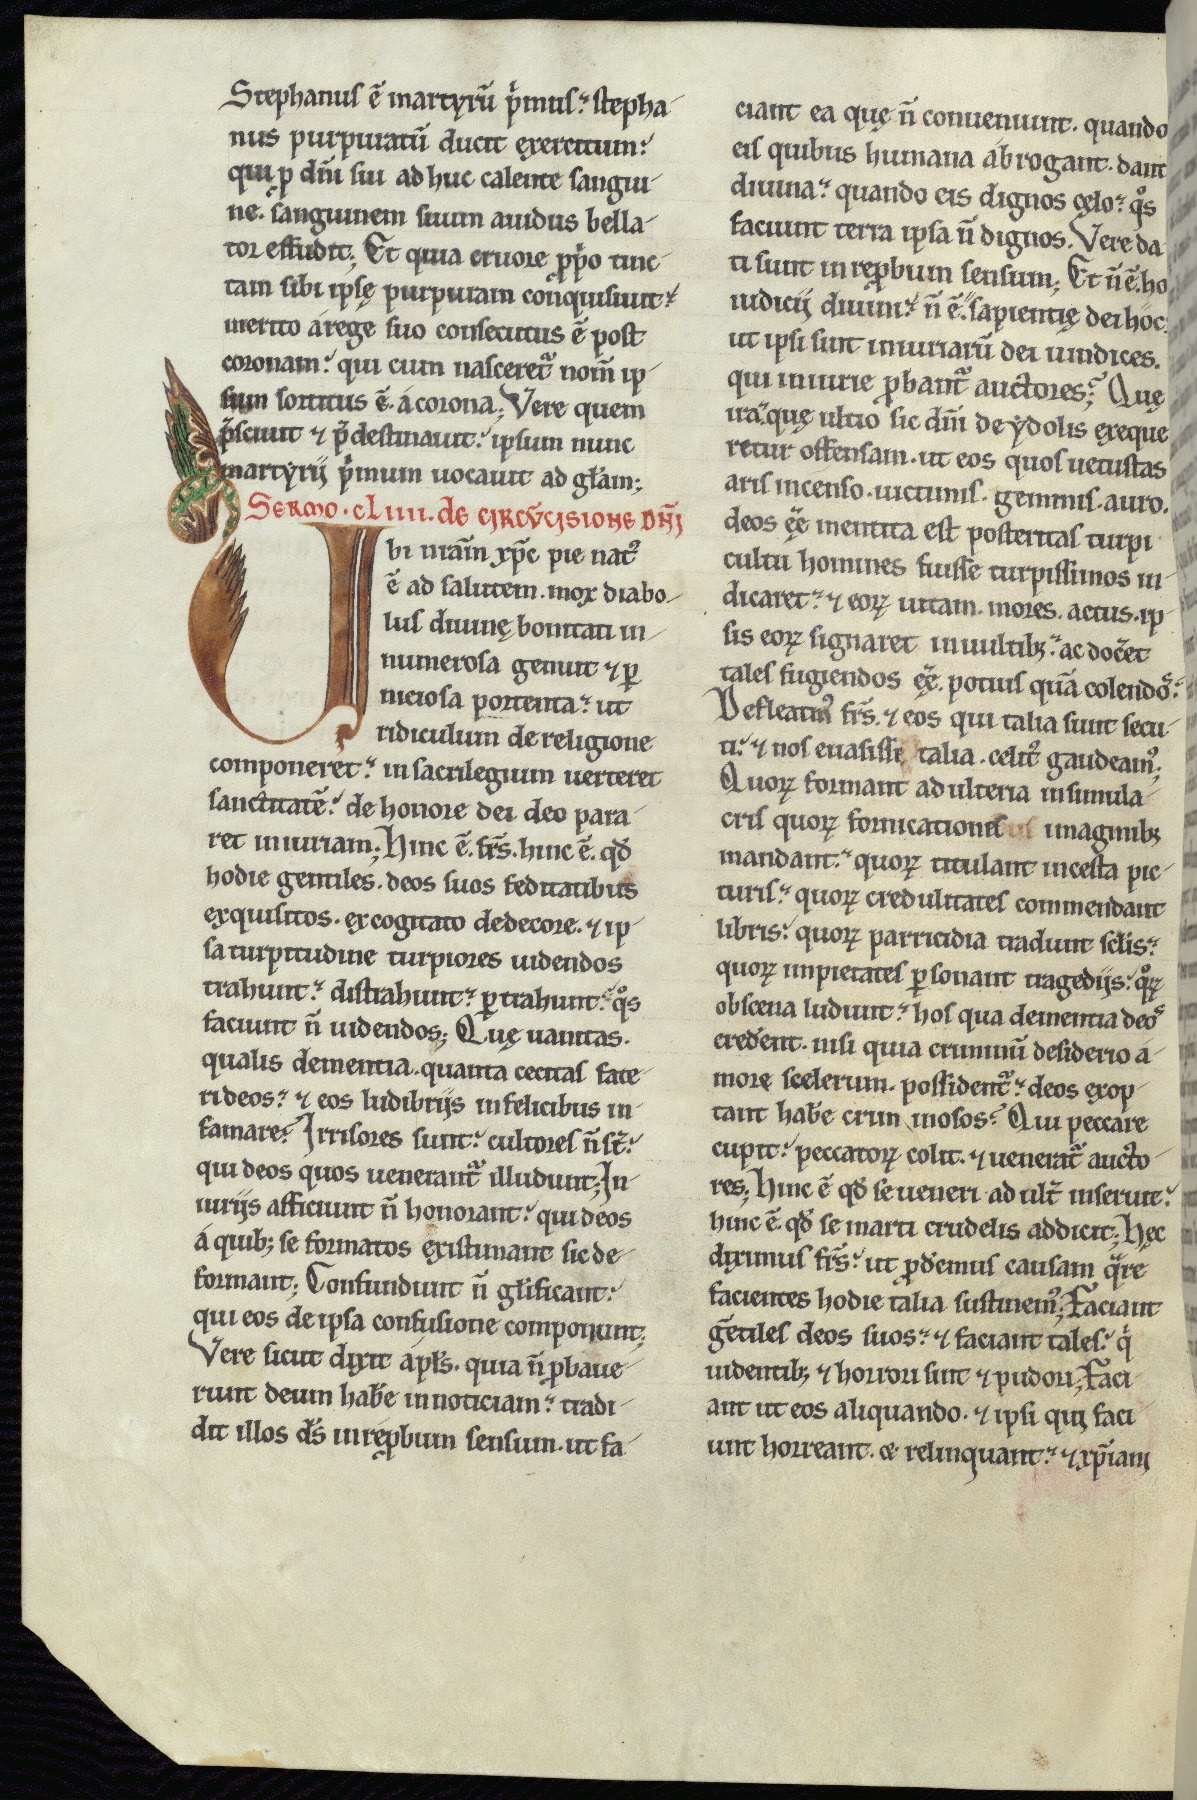 Stephanus ē martyrū p̄mus. stepha-
nus purpuratū ducit exercitum:
qui ꝓ dn̄i sui ad huc calente sangui-
ne. sanguinem suum auidus bella-
tor effudit; Et quia cruore ꝓp̄o tinc-
tam sibi ipsę purpuram conquisiuit:
merito á rege suo consecutus ē post
coronam: qui cum nasceret᷑ nom̄ ip-
sum sortitus ē. á corona; Vere quem
p̄sciuit ⁊ p̄destinauit: ipsum nunc
martyrij p̄mum uocauit ad gl̄am;
Sermo. cl iiii. de circūcisione dn̄i
Ubi nr̄aīn xp̄c pie natꝰ
ē ad salutem. mox diabo-
lus diuinę bonitati in-
numerosa genuit ⁊ ꝑ-
niciosa portenta: ut
ridiculum de religione
componeret: in sacrilegium uerteret
sanctitatē: de honore dei deo para-
ret iniuriam; Hinc ē. fr̄s. hinc ē. qđ
hodie gentiles. deos suos feditatibus
exquisitos. excogitato dedecore. ⁊ ip-
sa turpitudine turpiores uidendos
trahunt: distrahunt: ꝑtrahunt: qͦs
faciunt n̄ uidendos; Quę uanitas.
qualis dementia. quanta cecitas fate-
ri deos: ⁊ eos ludibrijs infelicibus in-
famare? Irrisores sunt: cultores n̄ st̄:
qui deos quos uenerant᷑ illudunt; In-
iurijs afficiunt n̄ honorant: qui deos
á quib; se formatos existimant sic de-
formant; Confundunt n̄ gl̄ificant:
qui eos de ipsa confusione componunt;
Vere sicut dixit apl̄s. quia n̄ ꝓbaue-
runt deum hab̄e in noticiam: tradi-
dit illos d̄s in reꝓbum sensum. ut fa-
ciant ea quę n̄ conueniunt. quando
eis quibus humana abrogant. dant
diuina: quando eis dignos cęlo: qͦs
faciunt terra ipsa n̄ dignos. Vere da-
ti sunt in reꝓbum sensum; Et n̄ ē. ho
iudicij diuini: n̄ ē. sapientię dei hoc:
ut ipsi sunt iniuriarū dei uindices.
qui iniurie ꝓbant᷑ auctores; Quę
ira: quę ultio sic dn̄i de ydolis exeque-
retur offensam. ut eos quos uetustas
aris incenso. uictimis. gemmis. auro.
deos eē mentita est posteritas turpi
cultu homines fuisse turpissimos iu-
dicaret: ⁊ eoꝝ uitam. mores. actus. ip-
sis eoꝝ signaret in uultibꝫ: ac doc̄et
tales fugiendos eē. potius quā colendos:
Defleamꝰ fr̄s. ⁊ eos qui talia sunt secu-
ti: ⁊ nos euasisse talia. celitꝰ gaudeamꝰ;
Quoꝝ formant adulteria in simula-
cris quoꝝ fornicationes imaginibꝫ
mandant: quoꝝ titulant incesta pic-
turis: quoꝝ credulitates commendant
libris: quoꝝ parricidia tradunt sc̄lis:
quoꝝ impietates ꝑsonant tragedijs: qͦꝝ
obscena ludunt: hos qua dementia deos
cred̄ent. nisi quia criminū desiderio a-
more scelerum. possident᷑: deos exop-
tant hab̄e criminosos? Qui peccare
cupit: peccatoꝝ colit. ⁊ uenerat᷑ aucto-
res; Hinc ē qđ se ueneri adult̄ inseruit:
hinc ē qđ se marti crudelis addicit; Hęc
diximus fr̄s: ut ꝓdemus causam qͣre
facientes hodie talia sustinemꝰ; Faciant
ḡentiles deos suos: ⁊ faciant tales: qͥ
uidentibꝫ ⁊ horrori sint ⁊ pudori; Faci-
ant ut eos aliquando. ⁊ ipsi qui faci-
unt horreant. ce relinquant: ⁊ xp̄iani